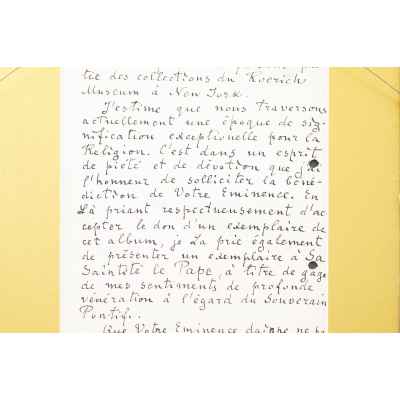 tie des collections du Roerich
Museum à New York.
J'estime que nous traversons
actuellement une époque de sig-
nification exceptionelle pour la
Religion. C'est dans un esprit
de piété et de dévotion que j'ai
l'honneur de solliciter la béné-
diction de Votre Eminence. En
La priant respectueusement d'ac-
cepter le don d'un exemplaire de
cet album, je La prie également
de présenter un exemplaire à Sa
Sainteté le Pape, à titre de gage
de mes sentiments de profonde
vénération à l'égard du Souverain
Pontif.
Que Votre Eminence daigne